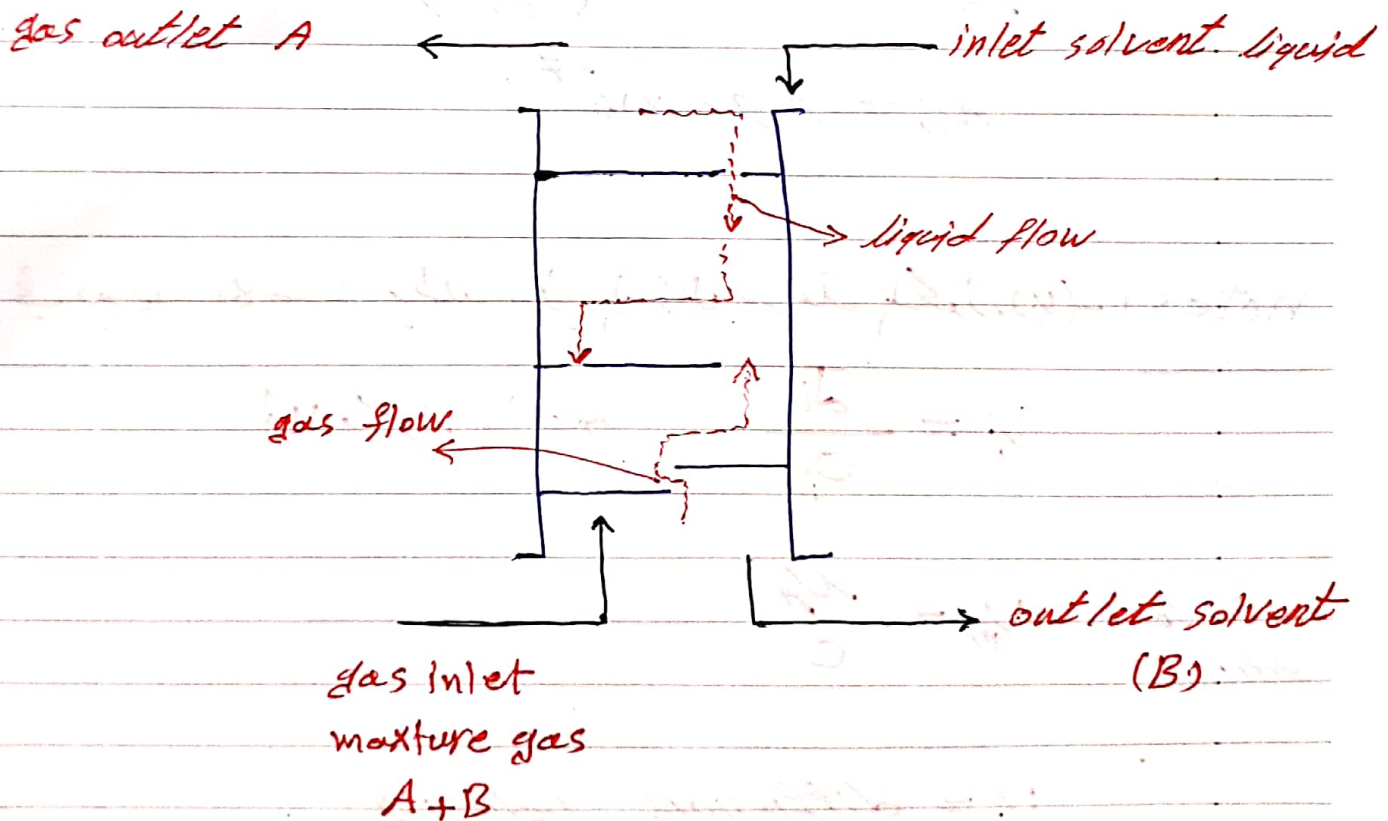 gas outlet A
inlet solvent liquid
liquid flow
gas flow
outlet solvent
(B)
gas inlet
maxture gas
A+B